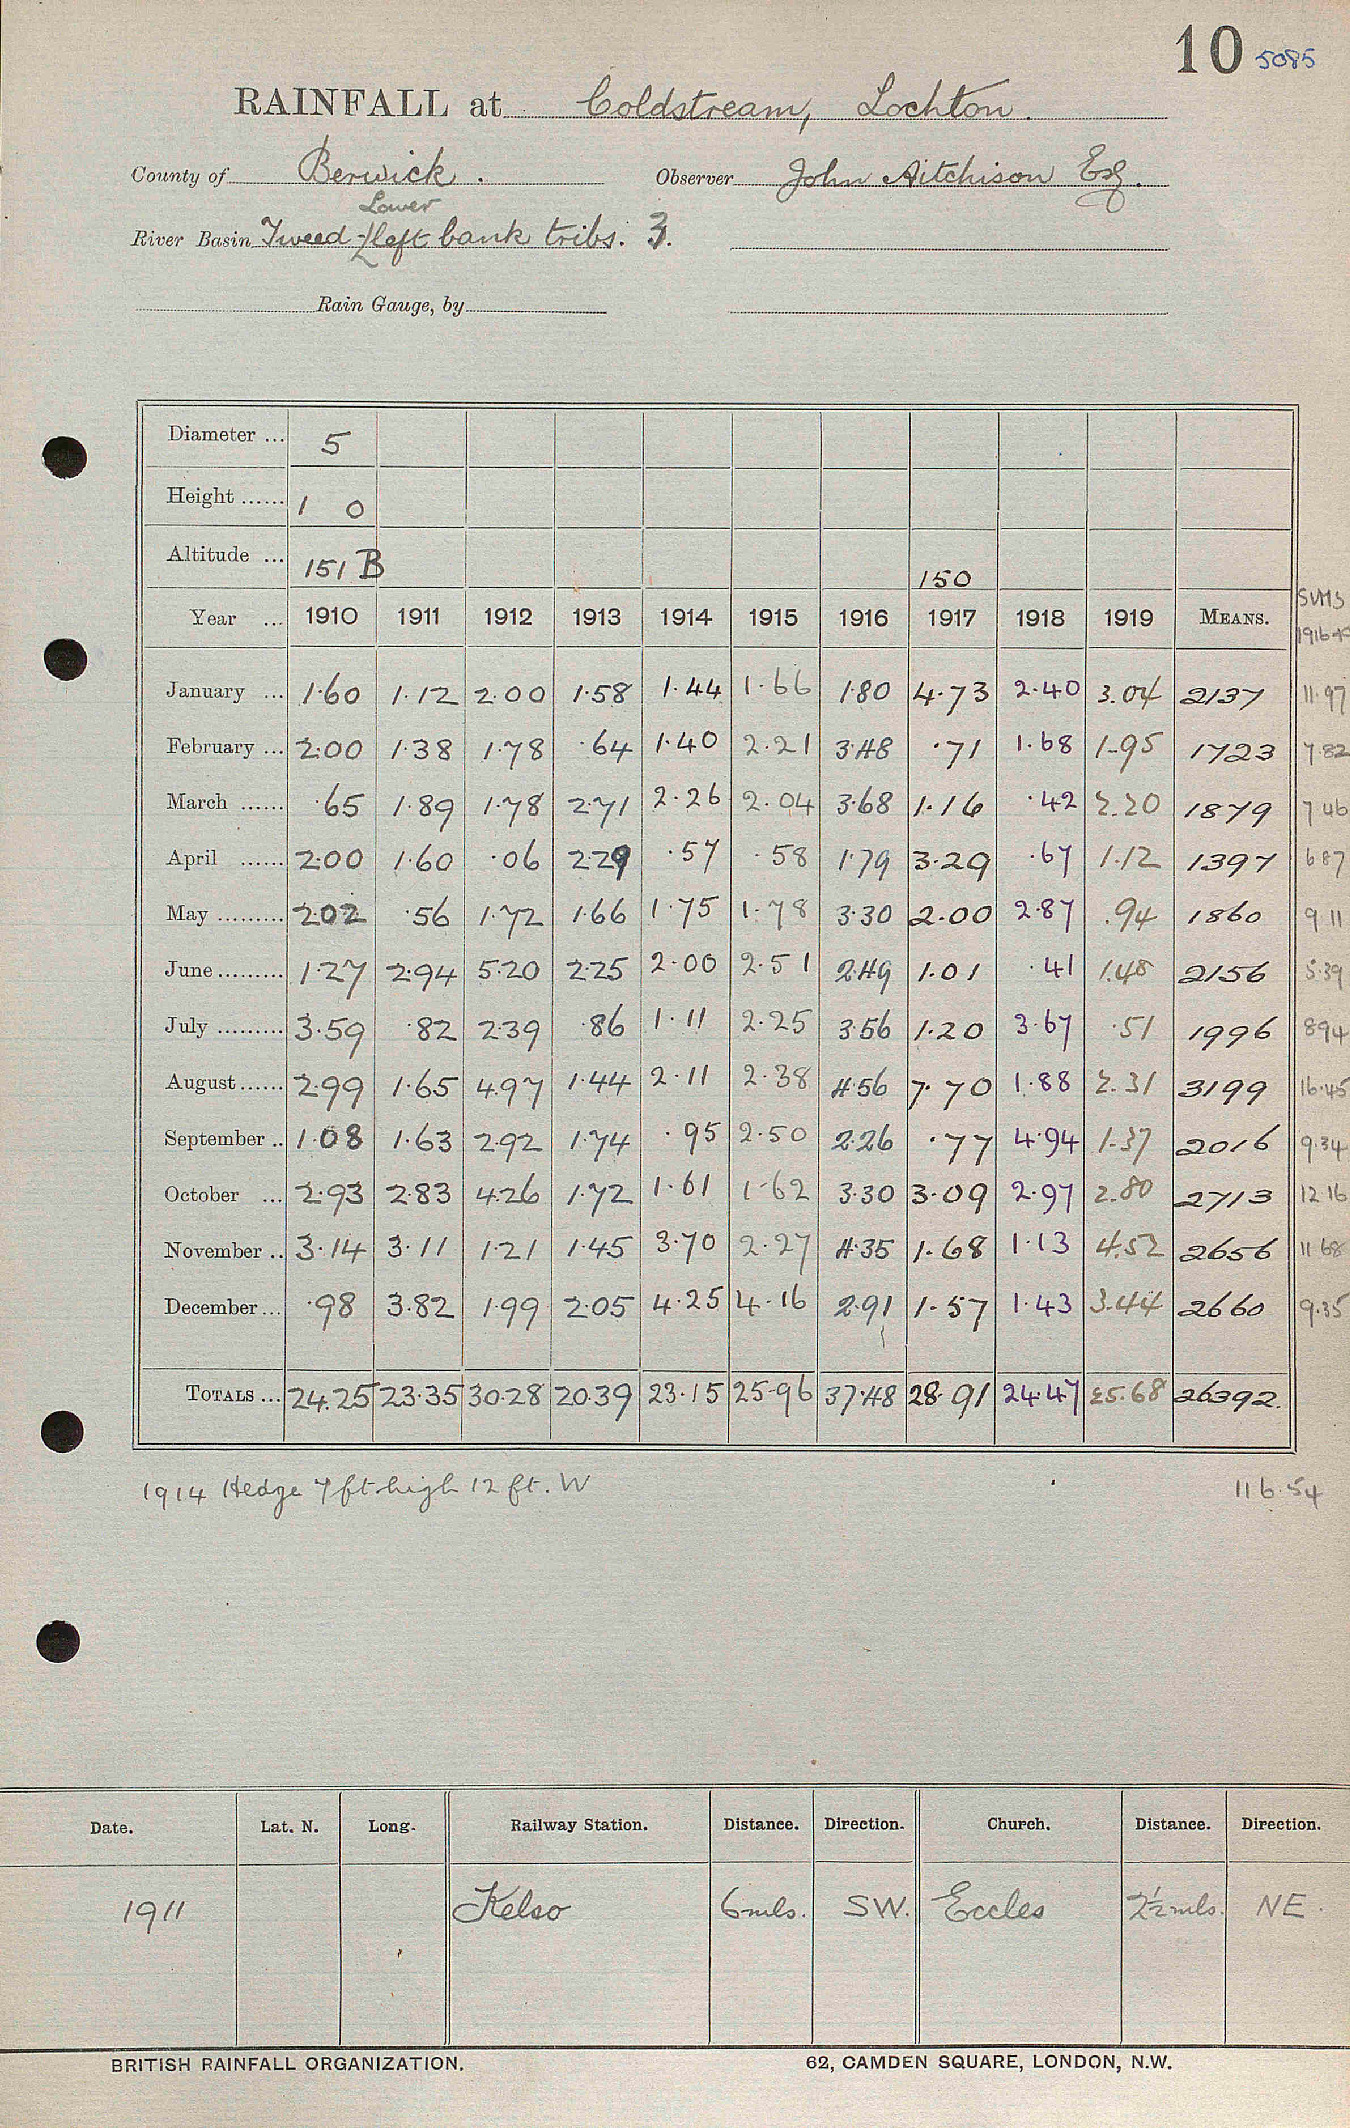 10 5085
RAINFALL at Coldstream, Lochton.
County of Berwick. Observer John Aitchison Esq.
Lower
River Basin Tweed left bank tribs. 3.
Rain Gauge, by
Diameter ... 5
Height ...... 1 0
Altitude ... 151 B 150
SUMS
Year ... 1910 1911 1912 1913 1914 1915 1916 1917 1918 1919 MEANS.
January ... 1.60 1.12 2.00 1.58 1.44 1.66 1.80 4.73 2.40 3.04 2137 11.97
February ... 2.00 1.38 1.78 .64 1.40 2.21 3.48 .71 1.68 1.95 1723 7 82
March ...... .65 1.89 1.78 2.71 2.26 2.04 3.68 1.16 .42 2.20 1879 7 46
April ...... 2.00 1.60 .06 2.29 .57 .58 1.79 3.29 .67 1.12 1397 6 87
May ......... 2.02 .56 1.72 1.66 1.75 1.78 3.30 2.00 2.87 .94 1860 9 11
June ......... 1.27 2.94 5.20 2.25 2.00 2.51 2.49 1.01 .41 1.48 2156 5.39
July ......... 3.59 .82 2.39 .86 1.11 2.25 3.56 1.20 3.67 .51 1996 8 94
August ...... 2.99 1.65 4.97 1.44 2.11 2.38 4.56 7.70 1.88 2.31 3199 16.45
September .. 1.08 1.63 2.92 1.74 .95 2.50 2.26 .77 4.94 1.37 2016 9.34
October ... 2.93 2.83 4.26 1.72 1.61 1.62 3.30 3.09 2.97 2.80 2713 12 16
November .. 3.14 3.11 1.21 1.45 3.70 2.27 4.35 1.68 1.13 4.52 2656 11 68
December ... .98 3.82 1.99 2.05 4.25 4.16 2.91 1.57 1.43 3.44 2660 9.35
TOTALS ... 24.25 23.35 30.28 20.39 23.15 25.96 37.48 28.91 24.47 25.68 26392.
1914 Hedge 7 ft high 12 ft. W 116.54
Date. Lat. N. Long. Railway Station. Distance. Direction. Church. Distance. Direction.
1911 Kelso 6 mls. SW. Eccles 2½ mls. NE.
BRITISH RAINFALL ORGANIZATION. 62, CAMDEN SQUARE, LONDON, N.W.